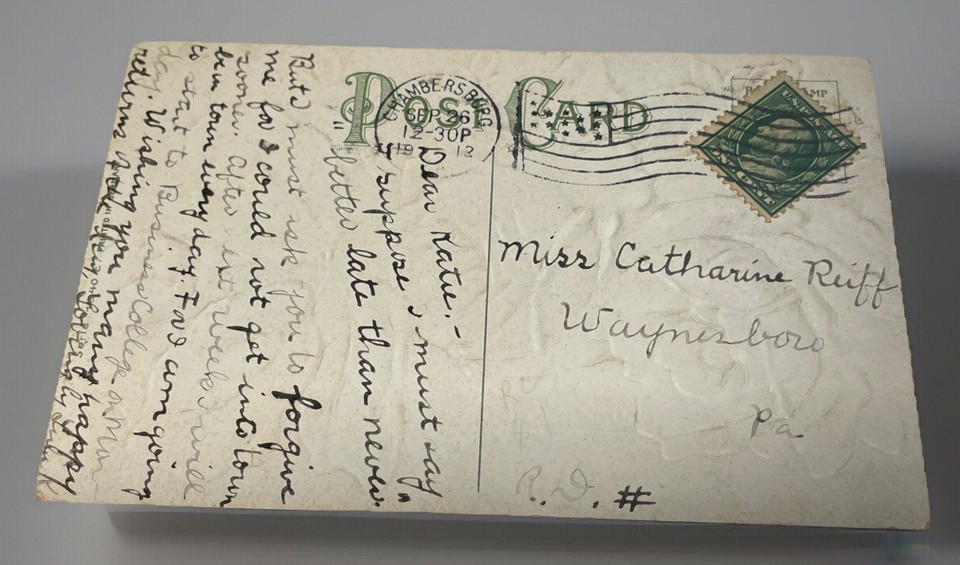 POST CARD
CHAMBERSBURG
SEP 26
12-30P
Miss Catharine Reiff
Waynesboro
Pa
R. D. #
Dear Katie.-
I suppose I must say
"better late than never"
But I must ask you to forgive
me for I could not get into town
sooner. After next Week I will
be in town every day. For I am going
to start to Business College on Mon
day. Wishing you many happy
returns of the day,